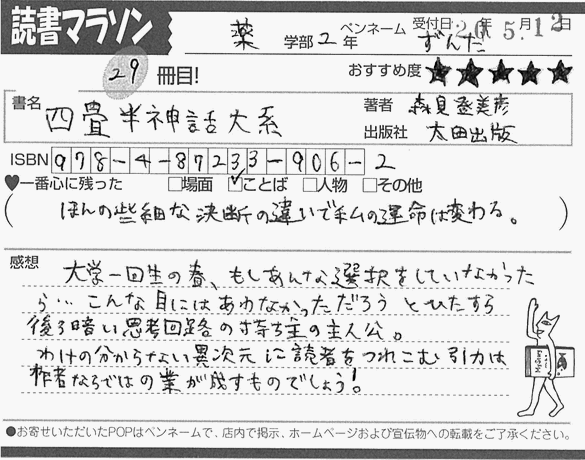 読書マラソン
薬 学部 2 年 ペンネーム ずんだ 受付日: 20年 5月12日
29 冊目! おすすめ度 ★★★★★
書名 四畳半神話大系 著者 森見登美彦
出版社 太田出版
ISBN 978-4-87233-906-2
♥一番心に残った □場面 ☑ことば □人物 □その他
(ほんの些細な決断の違いで私の運命は変わる。)
感想
大学一回生の春、もしあんな選択をしていなかった
ら… こんな目にはあわなかっただろう とひたすら
後ろ暗い思考回路の持ち主の主人公。
わけの分からない異次元に読者をつれこむ引力は
作者ならではの業が成すものでしょう!
●お寄せいただいたPOPはペンネームで、店内で掲示、ホームページおよび宣伝物への転載をご了承ください。